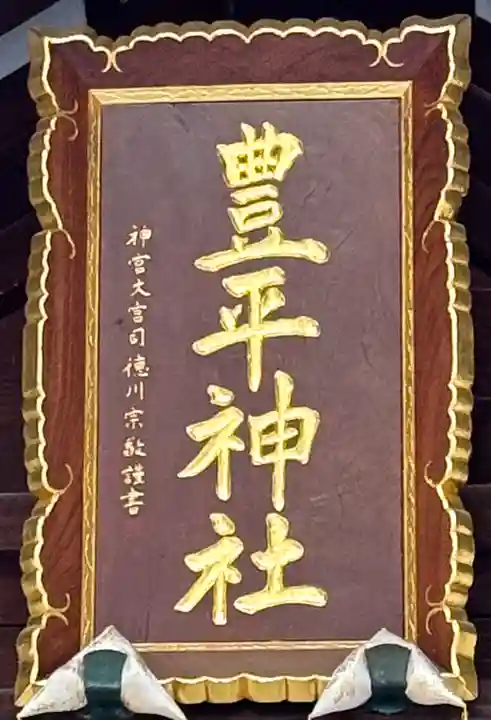 豊平神社
神宮大宮司徳川宗敬謹書